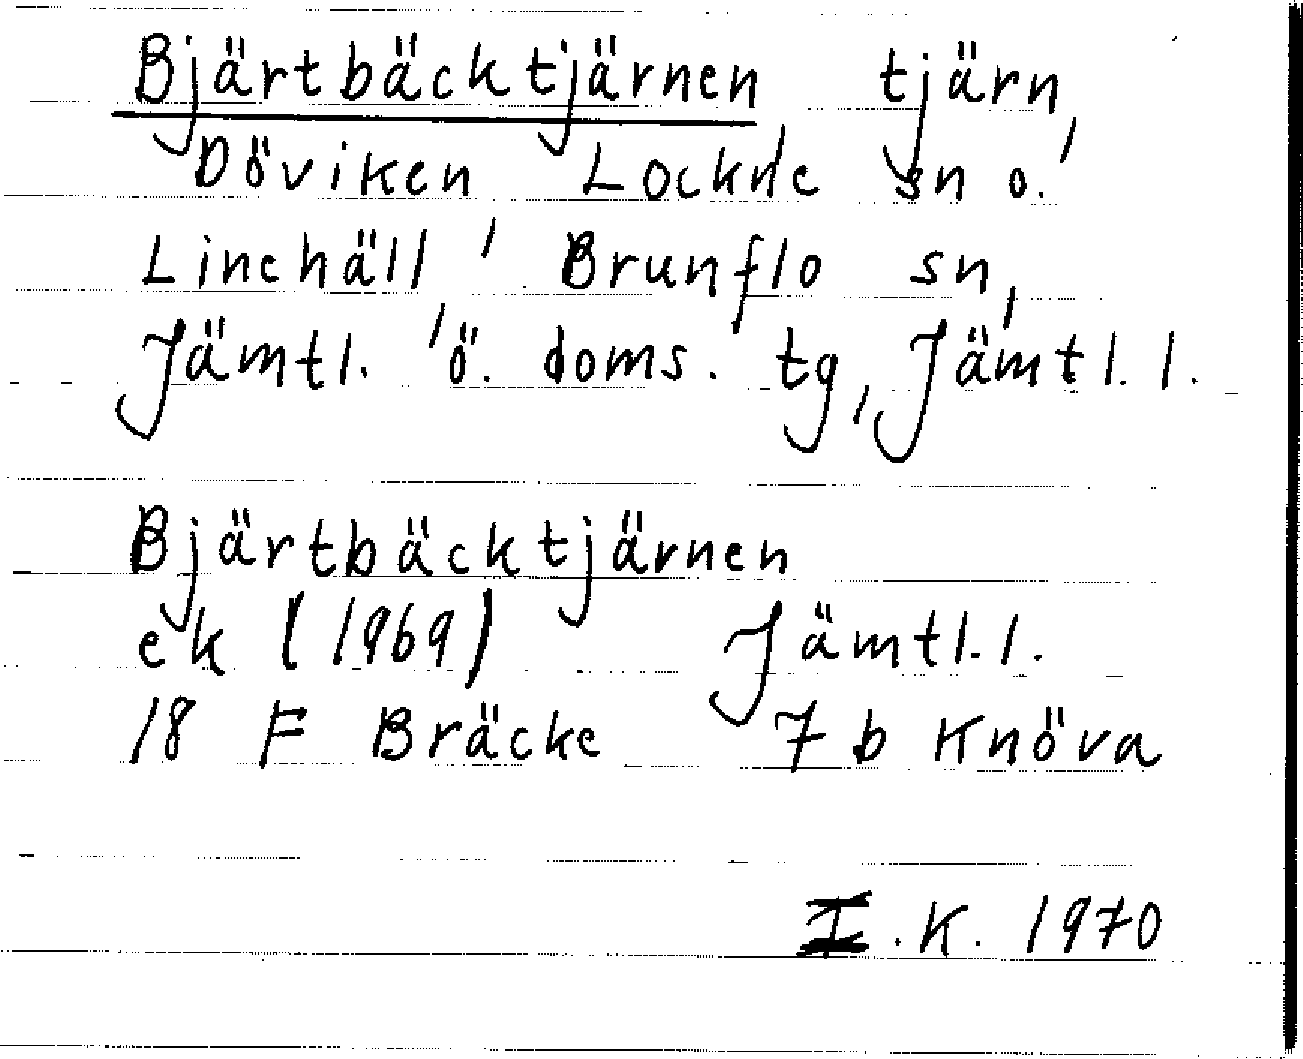 Bjärtbäcktjärnen tjärn,
Döviken, Lockne sn o.
Linehäll, Brunflo sn,
Jämtl. ö. doms. tg, Jämtl. l.
Bjärtbäcktjärnen
ek (1969) Jämtl. l.
18 F Bräcke 7 b Knöva
I.K. 1970